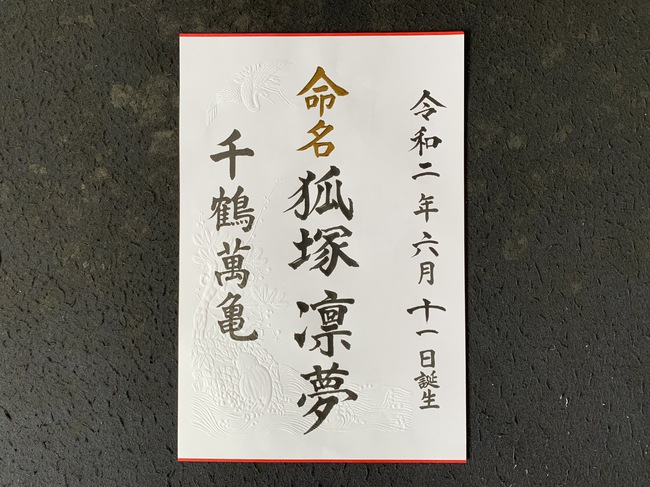 令和二年六月十一日誕生
命名 狐塚 凛夢
千鶴萬亀